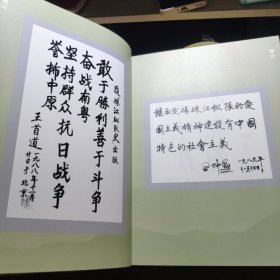 珠江纵队史出版
敢于胜利善于斗争
奋战南粤
坚持群众抗日战争
誉播中原
王首道
一九八八年十二月
廿日于北京
继承发扬珠江纵队的爱
国主义精神建设有中国
特色的社會主義
一九八九年